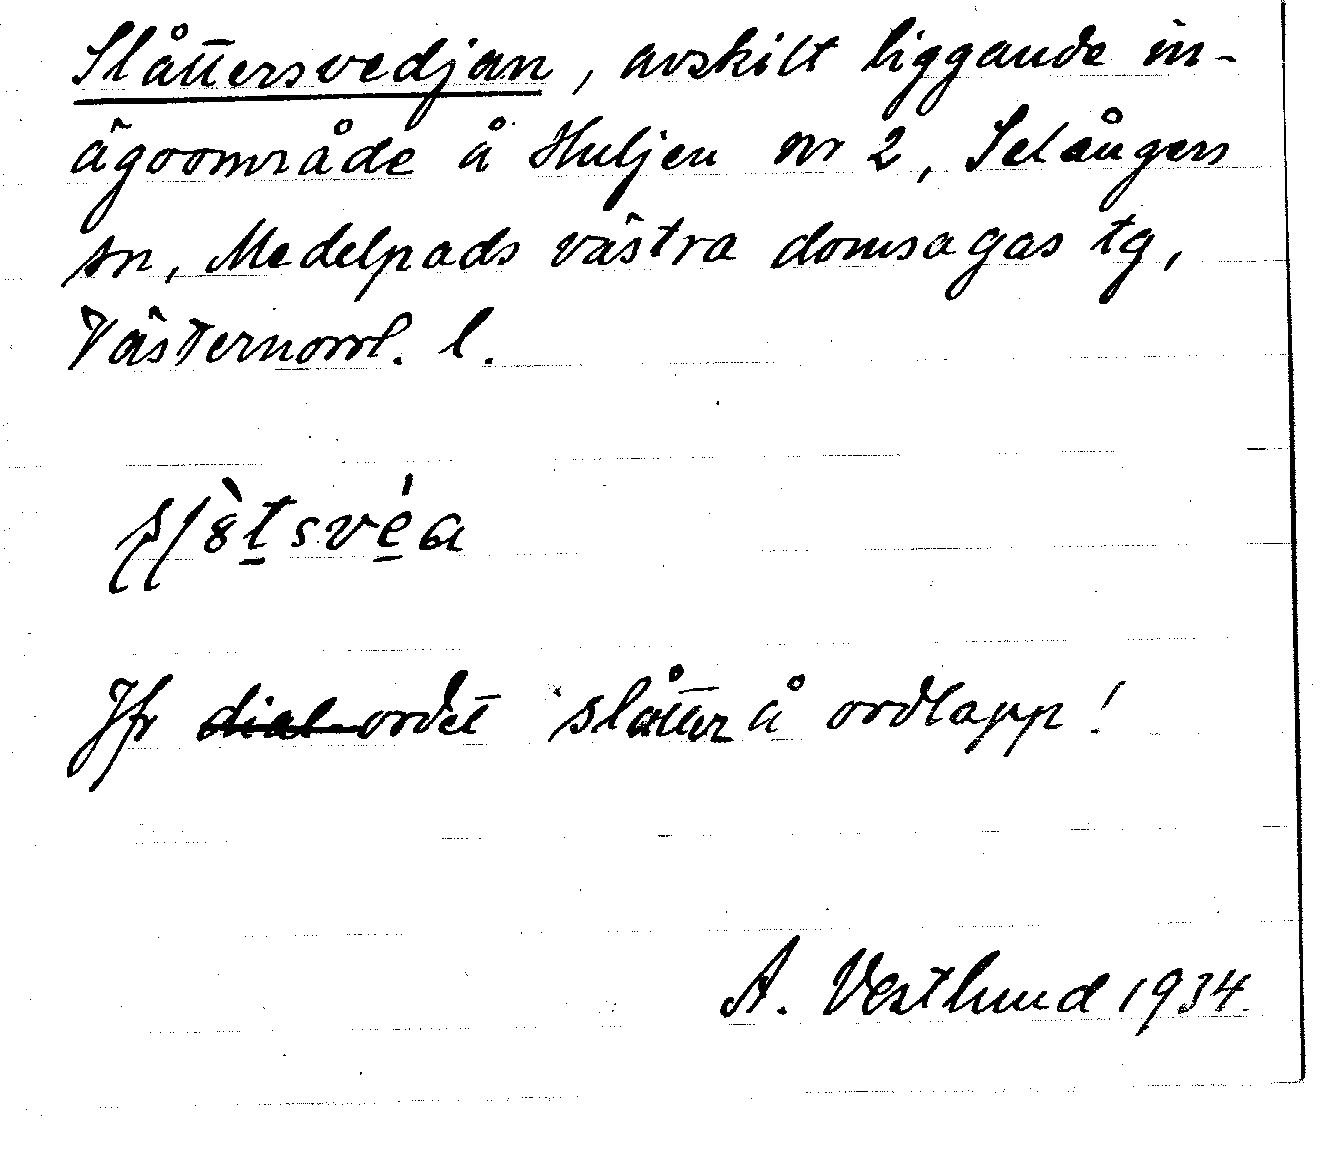 Slåttersvedjan, avskilt liggande in-
ägoområde å Huljen nr 2, Selångers
sn, Medelpads västra domsagas tg,
Västernorrl. l.
Jfr dial ordet slåtter å ordlapp!
A. Vestlund 1934.